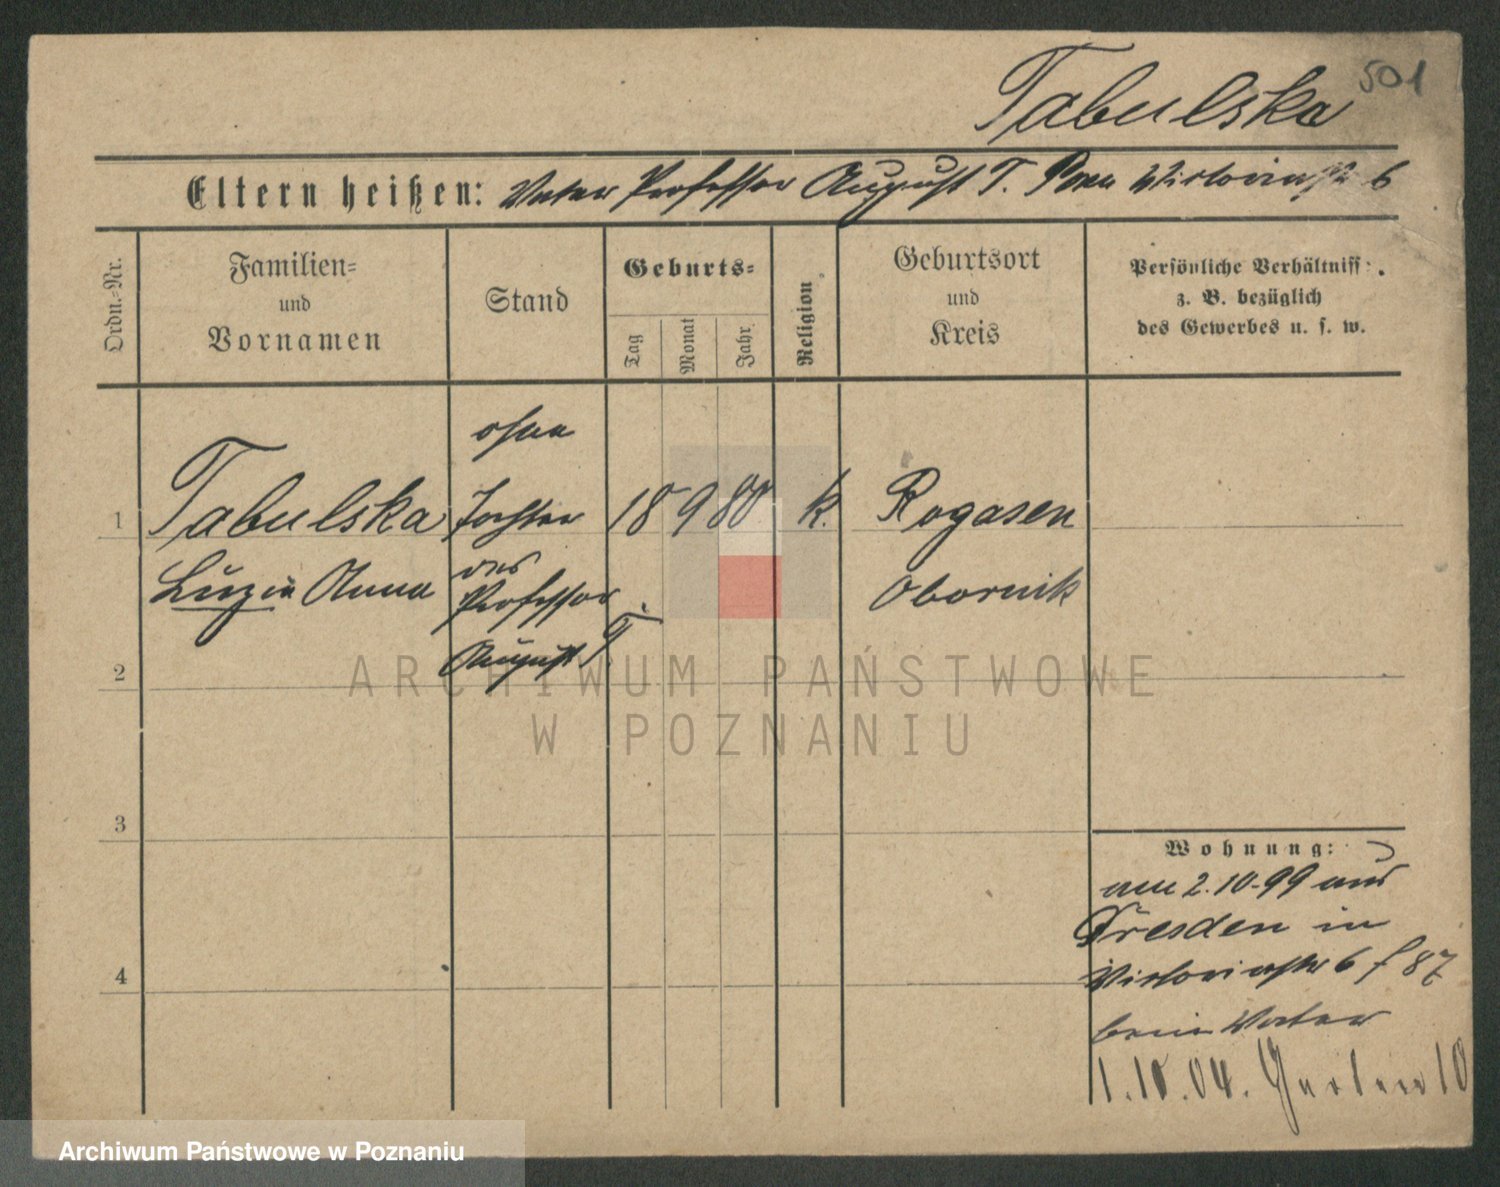 501
Tabulska
Eltern heißen: Vater Professor August T. Posen Victoriastr 6
Ordn.-Nr.
Familien-
und
Vornamen
Stand
Geburts-
Tag
Monat
Jahr
Religion
Geburtsort
und
Kreis
Persönliche Verhältniss
z. B. bezüglich
des Gewerbes u. s. w.
ohne
1 Tabulska Tochter 18 9 80 k. Rogasen
Luzie Anna des Obornik
Professor
August T.
2
3
4
Wohnung:
am 2.10.99 aus
Dresden in
Victoriastr 6 f 87
beim Vater
1.10.04. Garten 10
ARCHIWUM PAŃSTWOWE
W POZNANIU
Archiwum Państwowe w Poznaniu